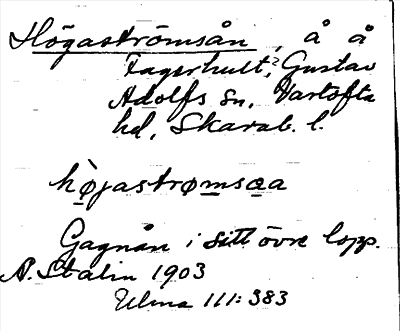 Högaströmsån, å å
Fagerhult,? Gustav
Adolfs sn, Vartofta
hd, Skarab. l.
hø̀jastrømsɑa
Gagnån i sitt övre lopp.
A. Stalin 1903
Ulma 111:383